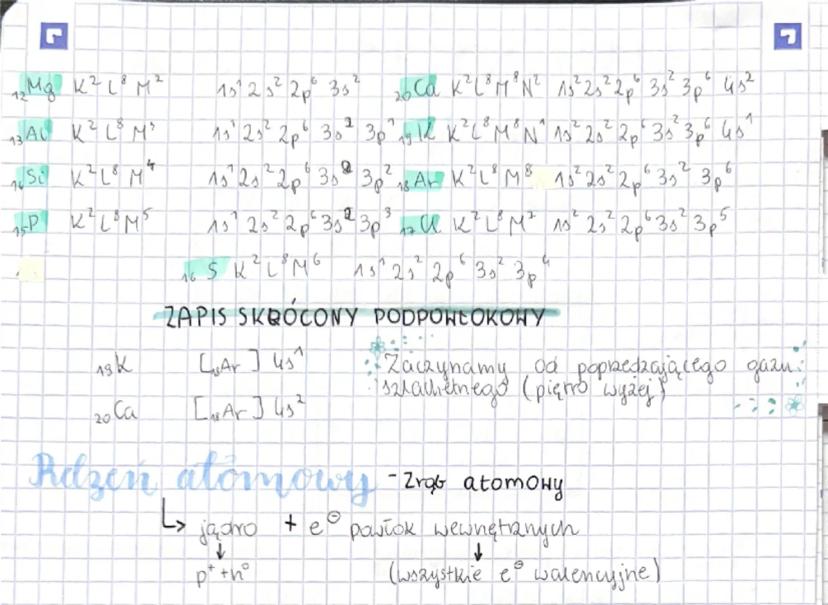 ₁₂Mg K² L⁸ M² 1s¹ 2s² 2p⁶ 3s² ₂₀Ca K² L⁸ M⁸ N² 1s² 2s² 2p⁶ 3s² 3p⁶ 4s²
₁₃Al K² L⁸ M³ 1s¹ 2s² 2p⁶ 3s² 3p¹ ₁₉K K² L⁸ M⁸ N¹ 1s² 2s² 2p⁶ 3s² 3p⁶ 4s¹
₁₄Si K² L⁸ M⁴ 1s¹ 2s² 2p⁶ 3s² 3p² ₁₈Ar K² L⁸ M⁸ 1s² 2s² 2p⁶ 3s² 3p⁶
₁₅P K² L⁸ M⁵ 1s¹ 2s² 2p⁶ 3s² 3p³ ₁₇Cl K² L⁸ M⁷ 1s² 2s² 2p⁶ 3s² 3p⁵
₁₆S K² L⁸ M⁶ 1s¹ 2s² 2p⁶ 3s² 3p⁴
ZAPIS SKRÓCONY PODPOWŁOKOWY
₁₉K [₁₈Ar] 4s¹ Zaczynamy od poprzedzającego gazu
szlachetnego (piętro wyżej)
₂₀Ca [₁₈Ar] 4s²
Rdzeń atomowy - Zrąb atomowy
↳ jądro + e⊖ powłok wewnętrznych
↓ ↓
p⁺ + n⁰ (wszystkie e⊖ walencyjne)